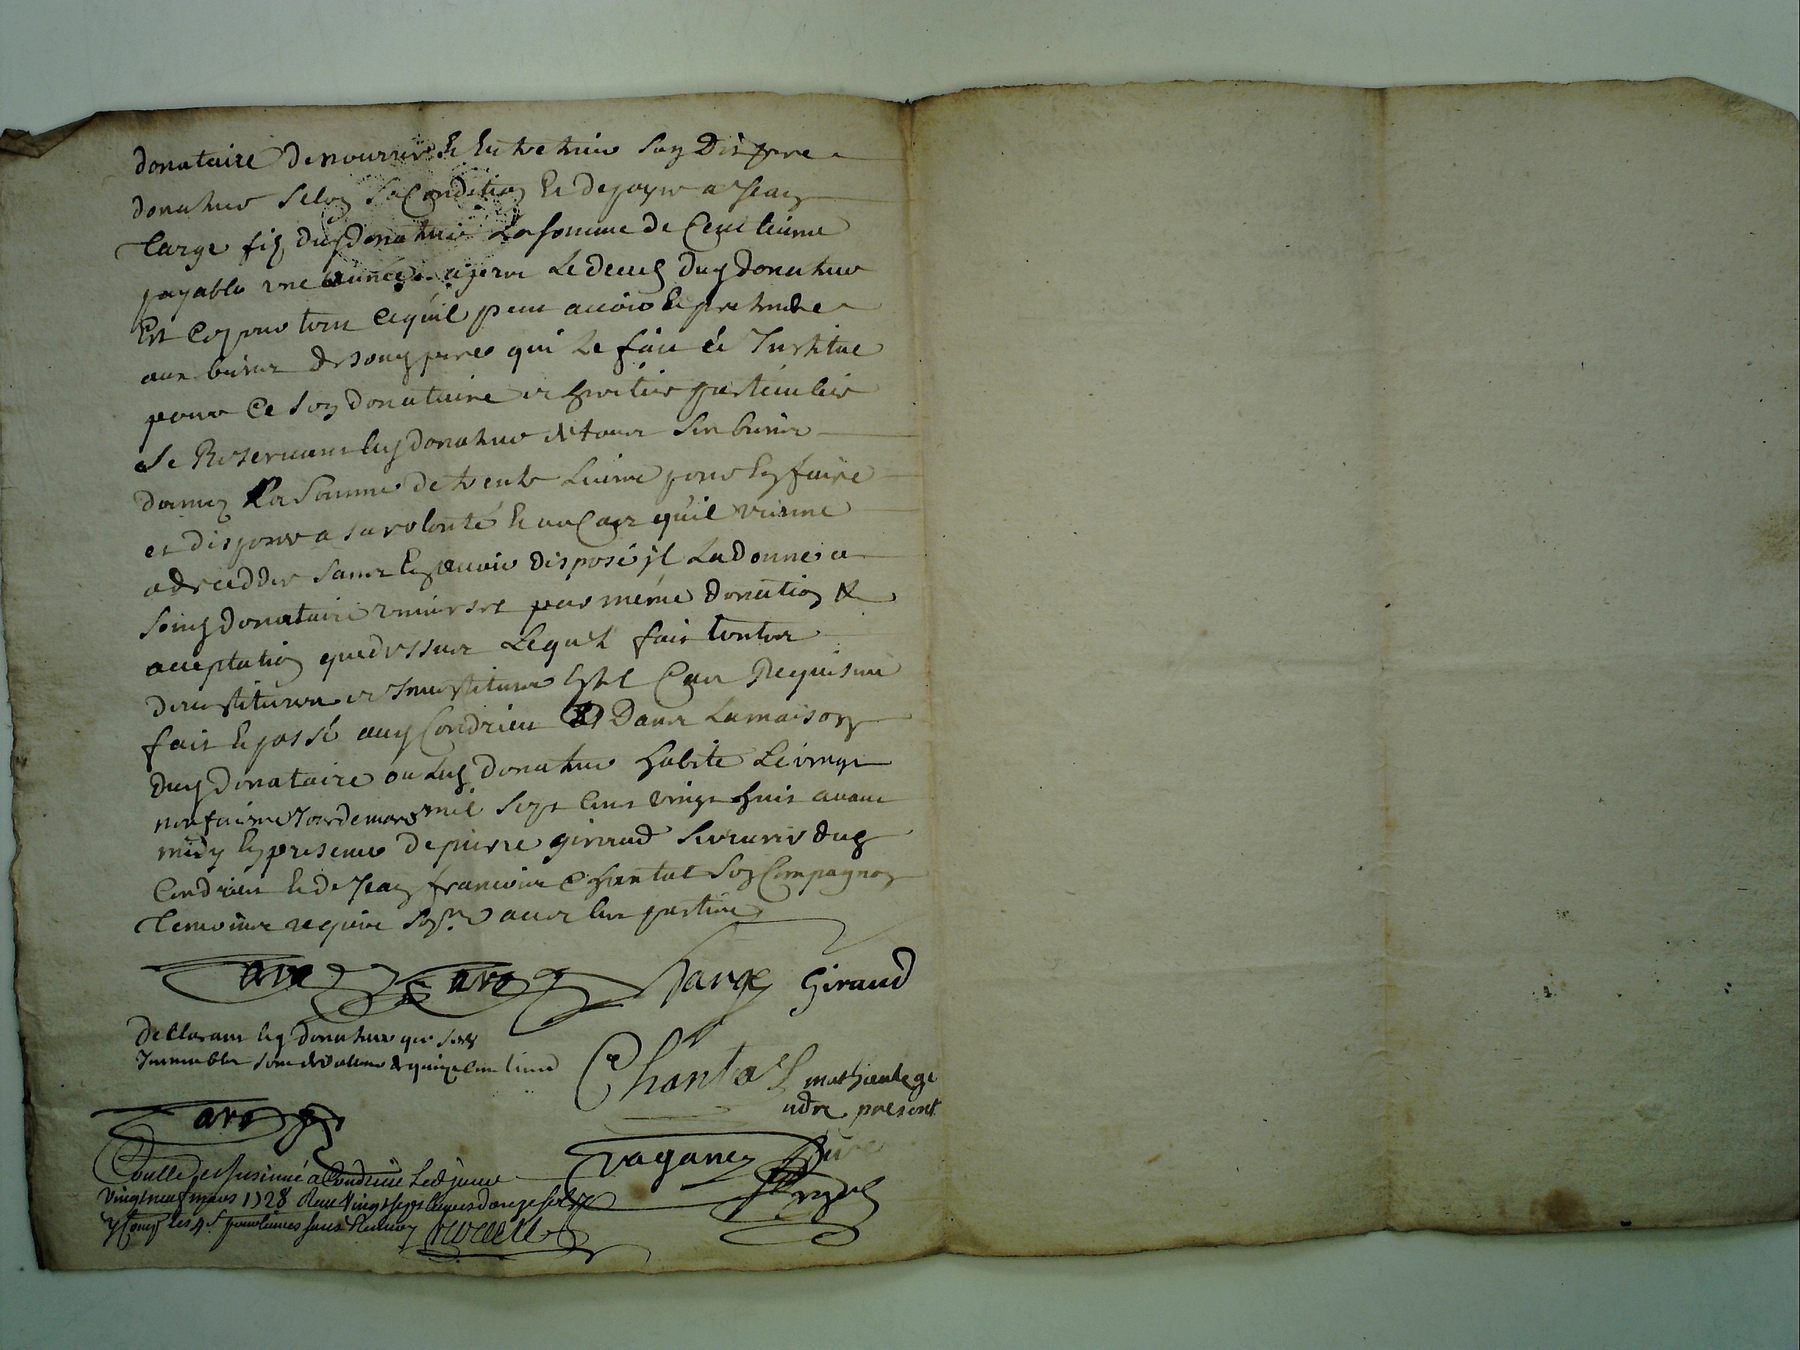 donataire de nourrir Et Entretenir Son Dit pere
donateur selon sa Condition Et de payer a Jean
Farge fils dud donateur La somme de Cent livres
payable une année apres Le deces dud donateur
Et Ce pour tous ce quil peut avoir Et pretendre
aux biens de son pere qui Le fait Et Institue
pour Ce son donataire et heritier particulier
Se Reservant led donateur de tous ses biens
donnez La Somme de trente Livres pour En faire
et disposer a sa volonté Et au Cas quil vienne
a decedder sans En avoir disposé il La donne a
sond donataire universel par meme donation &
acceptation que dessus Lequel fait toutes
devestitures et Investitures Est Cas Requis
fait Et passé aud Condrieu Dans La maison
dud Donataire ou Led donateur habite Le vingt
neufvieme Jour de mars mil Sept Cent vingt huit avant
midy En presence de pierre giraud Serrurier dud
Condrieu Et de Jean francois Chantal Son Compagnon
temoins requis Sign avec les parties
farge farge farge Giraud
Declarant led donateur que ses
Immeubles sont de valleur de quinze Cent livres
Chantal mathieu lege
ndre present
farge
Controllé et Insinué a Condrieu Led jour
vingt neuf mars 1728 Reçu vingt sept livres douze sols
y Compris les 4 s pour livres